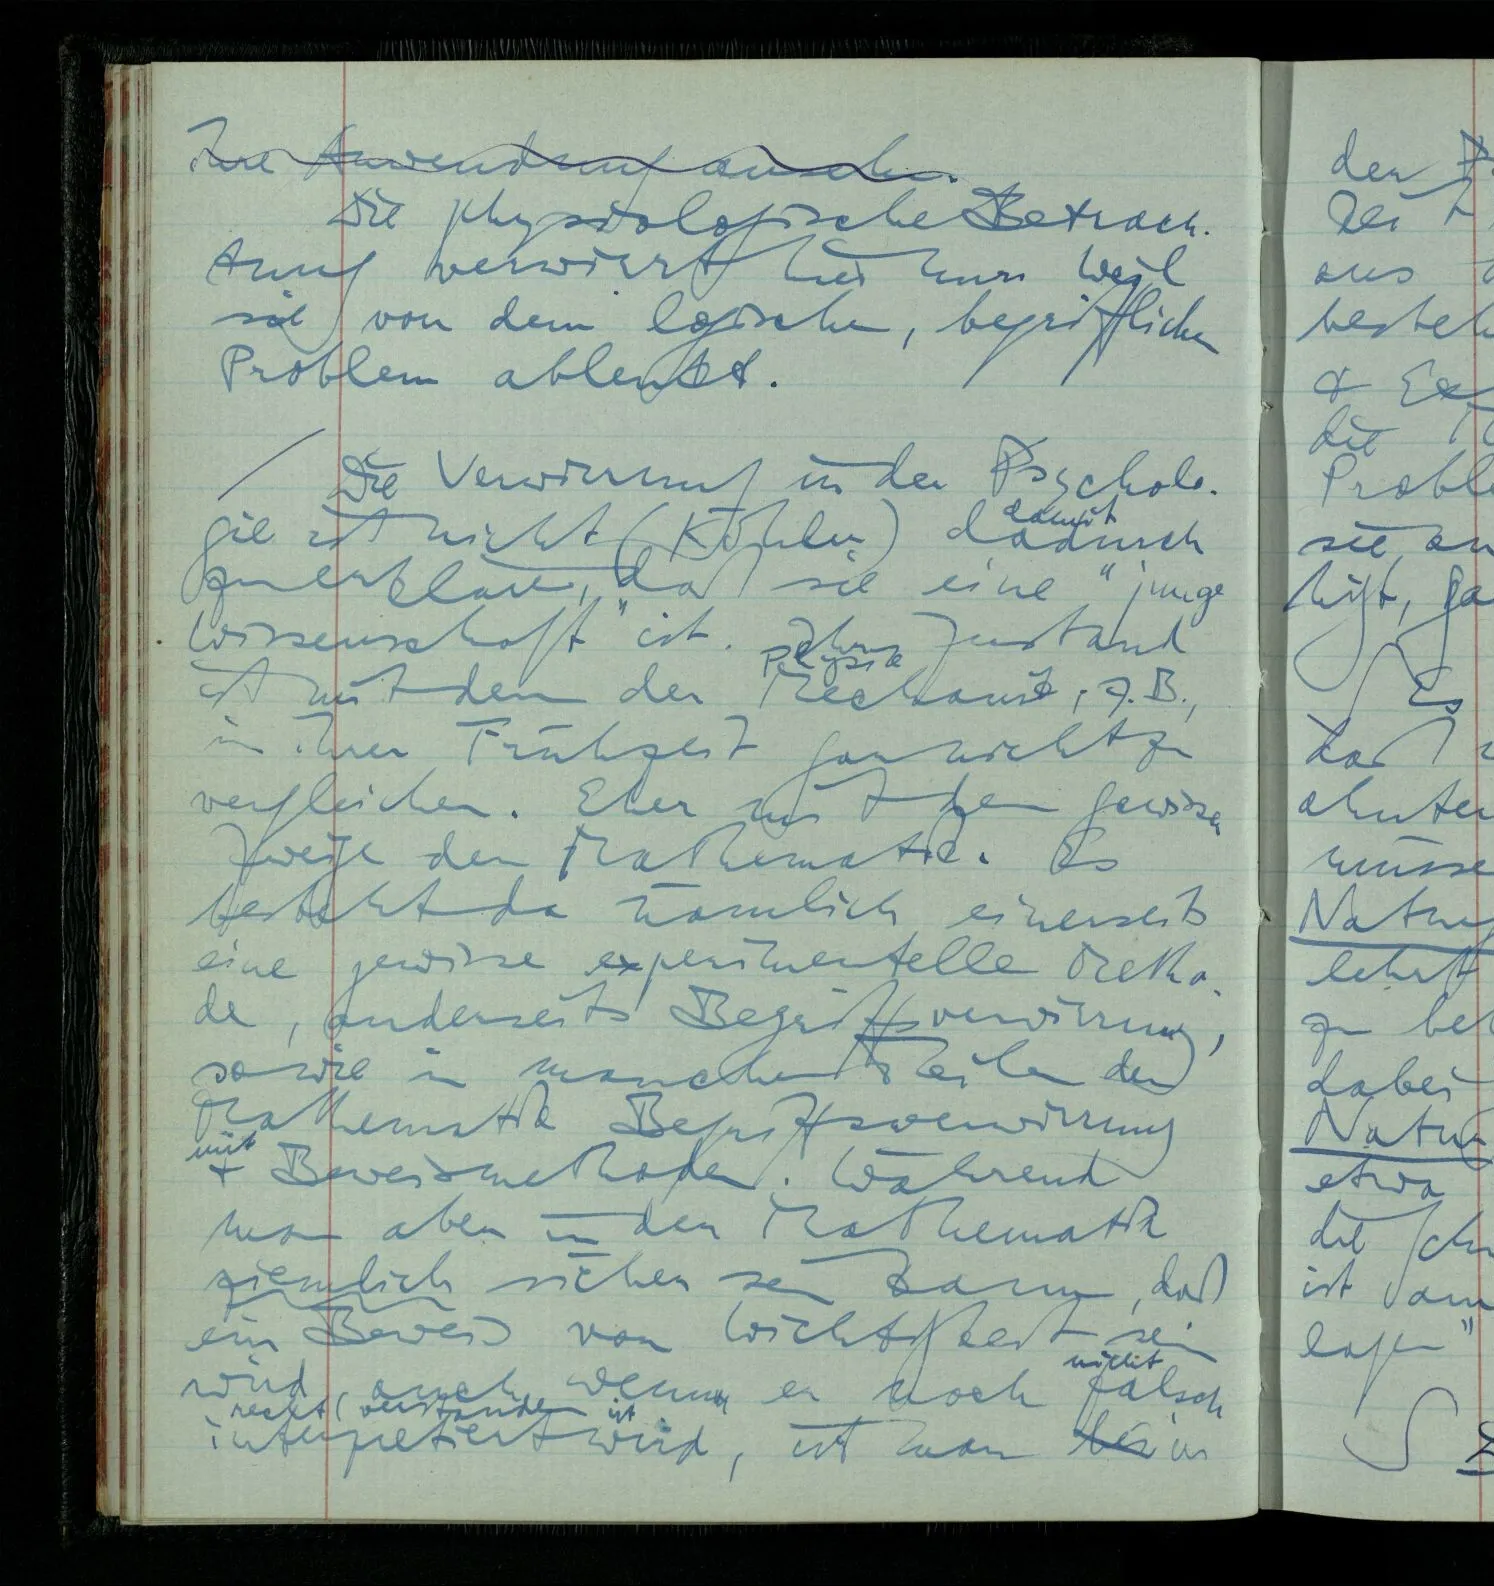 Ihre Anwendung ansehn.
Die physiologische Betrach-
tung verwirrt hier nur. Weil
sie von dem logischen, begrifflichen
Problem ablenkt.
/ Die Verwirrung in der Psycholo-
gie ist nicht (Köhler) dadurch
damit
zu erklären, daß sie eine "junge
Wissenschaft" ist. Ihr Zustand
Physik
ist mit dem der Mechanik, z.B.,
in ihrer Frühzeit gar nicht zu
vergleichen. Eher mit dem gewisser
Zweige der Mathematik. Es
besteht da nämlich einerseits
eine gewisse experimentelle Metho-
de, anderseits Begriffsverwirrung,
sowie in manchen Teilen der
Mathematik Begriffsverwirrung
mit
+ Beweismethoden. Während
man aber in der Mathematik
ziemlich sicher sein kann, daß
ein Beweis von Wichtigkeit sein
nicht
wird, auch wenn er noch falsch
recht verstanden ist
interpretiert wird, ist man bei in
den
bei
aus
besteh
& Ex
die
Proble
sie, an
hilft, ga
Es
daß
ahnten
müsse
Natur
lehrt
zu be
dabei
Natur
etwa
die
ist
lagen"